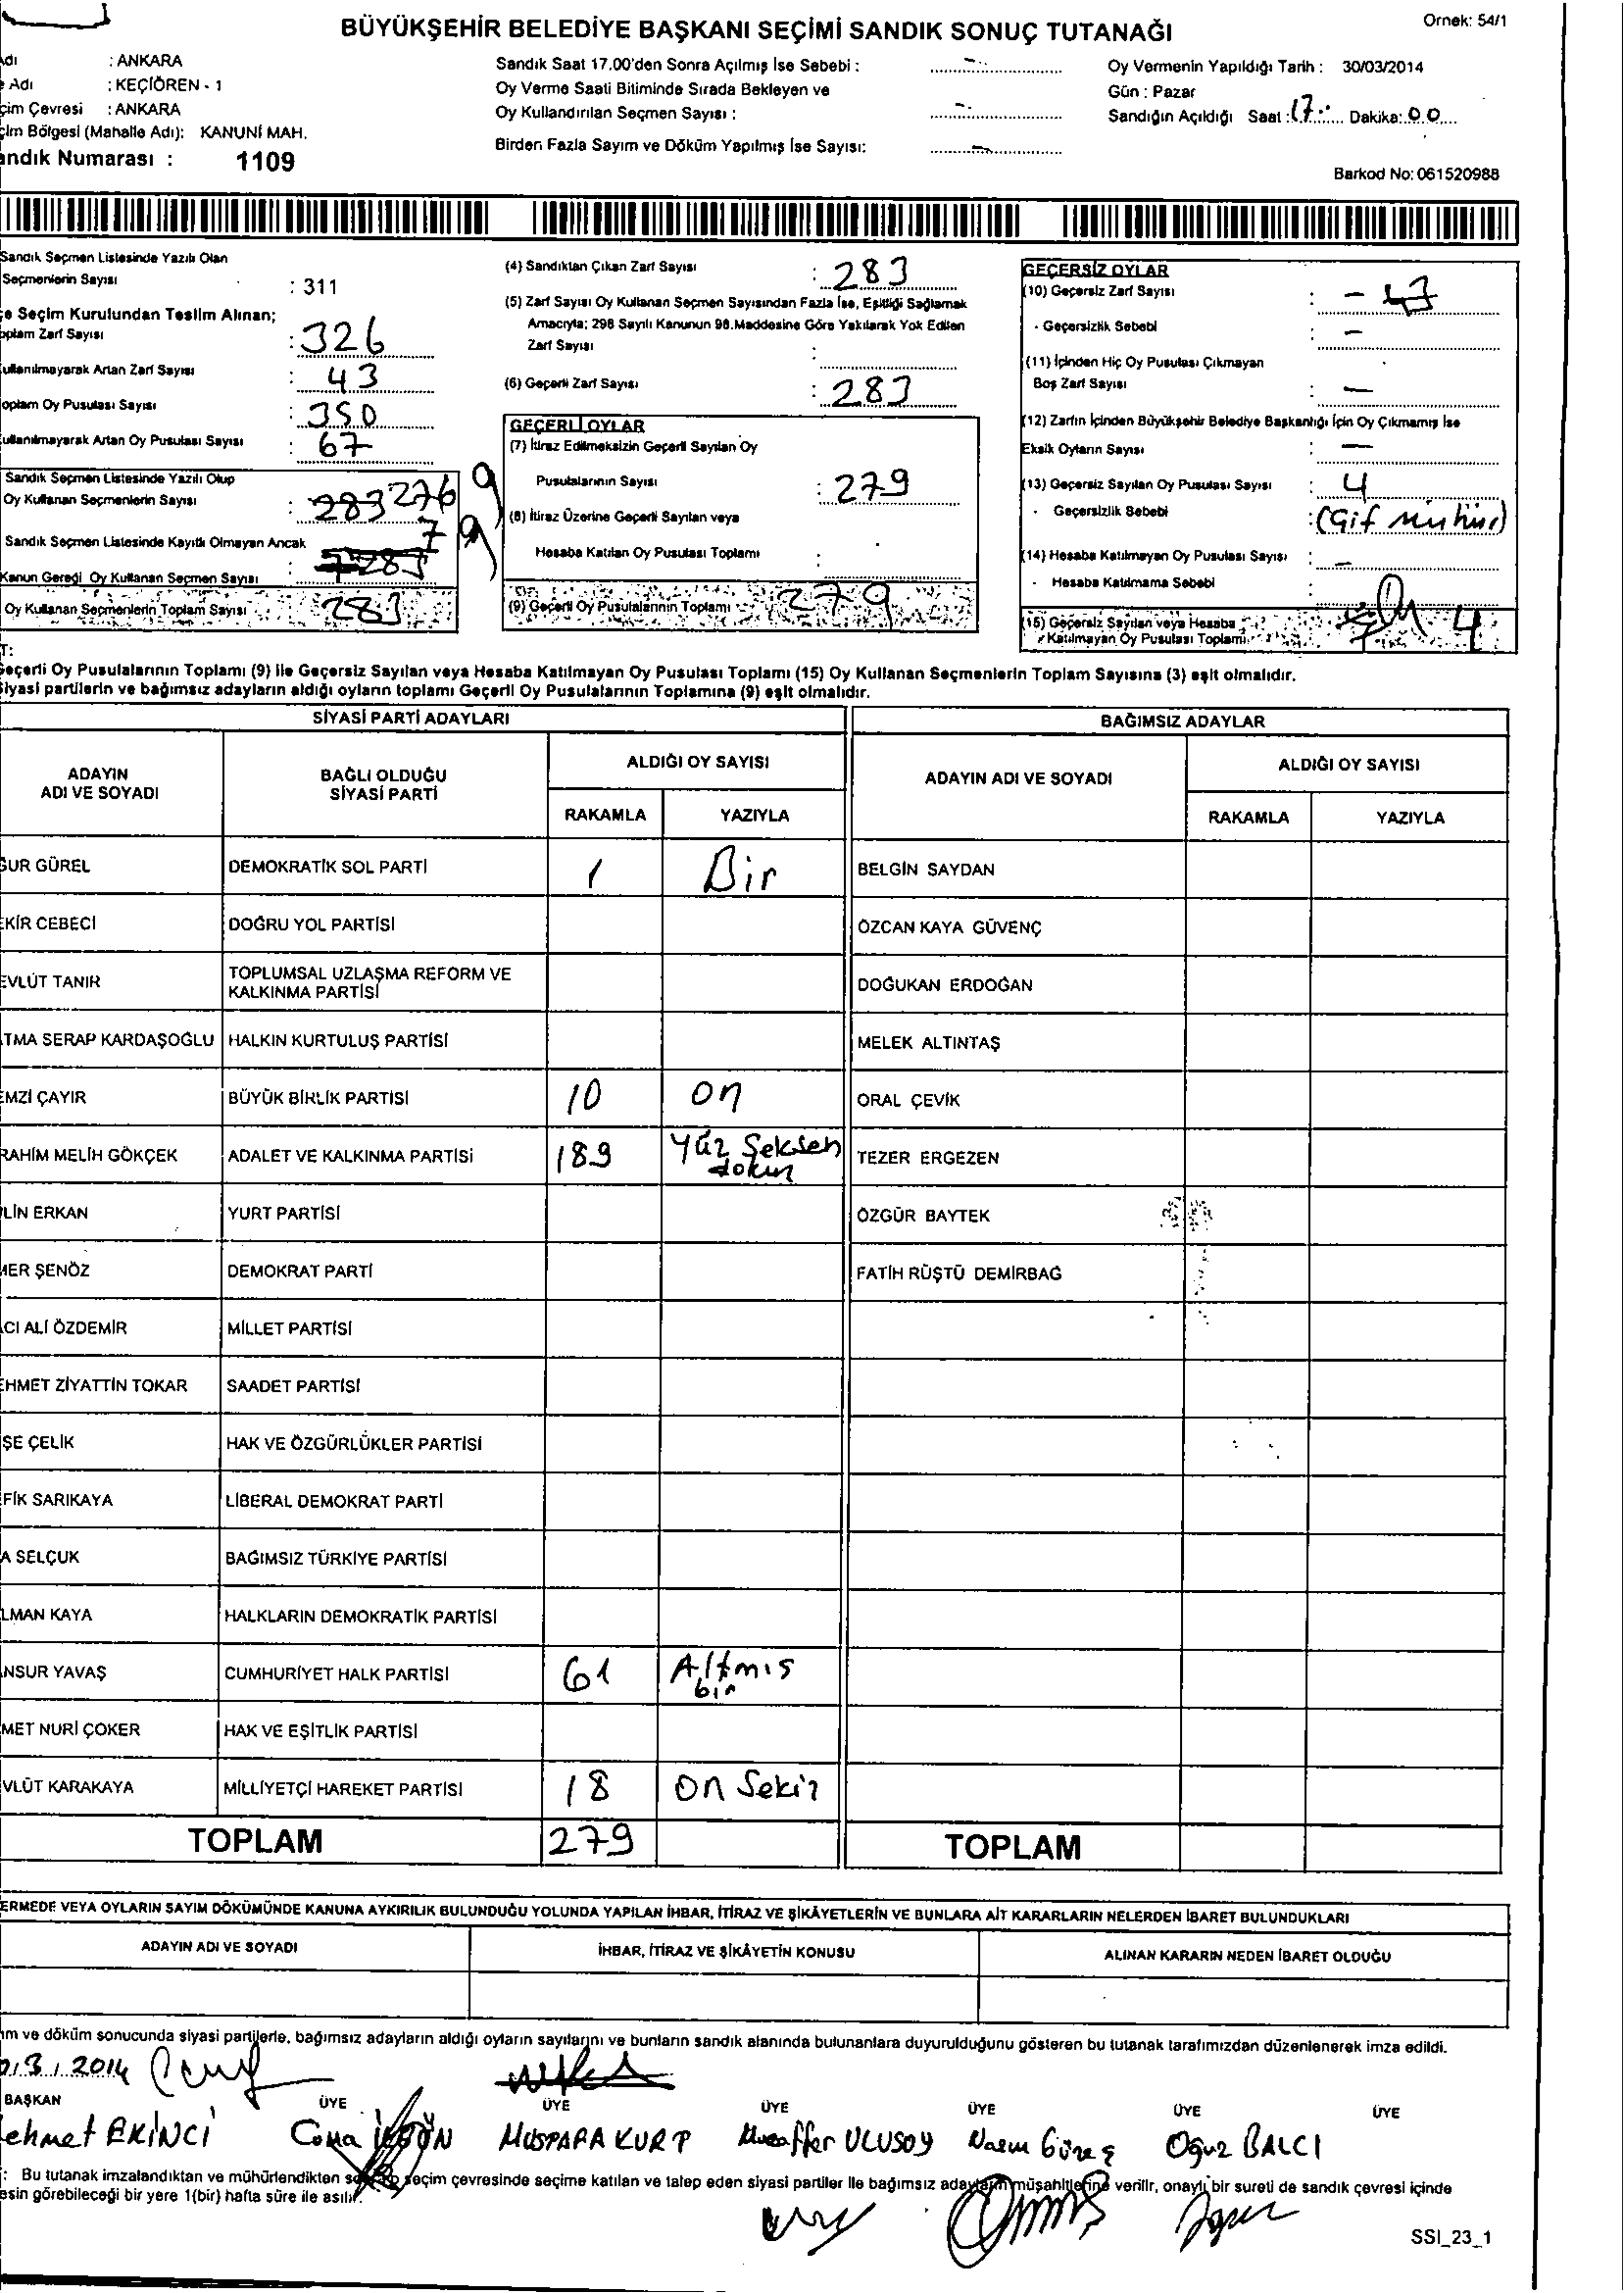 Örnek: 54/1
BÜYÜKŞEHİR BELEDİYE BAŞKANI SEÇİMİ SANDIK SONUÇ TUTANAĞI
dı : ANKARA
Adı : KEÇİÖREN - 1
çim Çevresi : ANKARA
çim Bölgesi (Mahalle Adı): KANUNİ MAH.
andık Numarası : 1109
Sandık Saat 17.00'den Sonra Açılmış İse Sebebi :
Oy Verme Saati Bitiminde Sırada Bekleyen ve
Oy Kullandırılan Seçmen Sayısı :
Birden Fazla Sayım ve Döküm Yapılmış İse Sayısı:
Oy Vermenin Yapıldığı Tarih : 30/03/2014
Gün : Pazar
Sandığın Açıldığı Saat : 17 Dakika: 00
Barkod No: 061520988
Sandık Seçmen Listesinde Yazılı Olan
Seçmenlerin Sayısı : 311
e Seçim Kurulundan Teslim Alınan;
oplam Zarf Sayısı : 326
ullanılmayarak Artan Zarf Sayısı : 43
oplam Oy Pusulası Sayısı : 350
ullanılmayarak Artan Oy Pusulası Sayısı : 67
Sandık Seçmen Listesinde Yazılı Olup
Oy Kullanan Seçmenlerin Sayısı : 283 276
Sandık Seçmen Listesinde Kayıtlı Olmayan Ancak 7
Kanun Gereği Oy Kullanan Seçmen Sayısı :
Oy Kullanan Seçmenlerin Toplam Sayısı : 283
(4) Sandıktan Çıkan Zarf Sayısı : 283
(5) Zarf Sayısı Oy Kullanan Seçmen Sayısından Fazla İse, Eşitliği Sağlamak
Amacıyla; 298 Sayılı Kanunun 98.Maddesine Göre Yakılarak Yok Edilen
Zarf Sayısı :
(6) Geçerli Zarf Sayısı : 283
GEÇERLİ OYLAR
(7) İtiraz Edilmeksizin Geçerli Sayılan Oy
Pusulalarının Sayısı : 279
(8) İtiraz Üzerine Geçerli Sayılan veya
Hesaba Katılan Oy Pusulası Toplamı :
(9) Geçerli Oy Pusulalarının Toplamı : 279
GEÇERSİZ OYLAR
(10) Geçersiz Zarf Sayısı : -
- Geçersizlik Sebebi : -
(11) İçinden Hiç Oy Pusulası Çıkmayan
Boş Zarf Sayısı : -
(12) Zarfın İçinden Büyükşehir Belediye Başkanlığı İçin Oy Çıkmamış İse
Eksik Oyların Sayısı : -
(13) Geçersiz Sayılan Oy Pusulası Sayısı : 4
- Geçersizlik Sebebi : (Çift mühür)
(14) Hesaba Katılmayan Oy Pusulası Sayısı : -
- Hesaba Katılmama Sebebi :
(15) Geçersiz Sayılan veya Hesaba
Katılmayan Oy Pusulası Toplamı : 4
T:
eçerli Oy Pusulalarının Toplamı (9) ile Geçersiz Sayılan veya Hesaba Katılmayan Oy Pusulası Toplamı (15) Oy Kullanan Seçmenlerin Toplam Sayısına (3) eşit olmalıdır.
iyasi partilerin ve bağımsız adayların aldığı oyların toplamı Geçerli Oy Pusulalarının Toplamına (9) eşit olmalıdır.
SİYASİ PARTİ ADAYLARI BAĞIMSIZ ADAYLAR
ADAYIN ADI VE SOYADI BAĞLI OLDUĞU SİYASİ PARTİ ALDIĞI OY SAYISI ADAYIN ADI VE SOYADI ALDIĞI OY SAYISI
RAKAMLA YAZIYLA RAKAMLA YAZIYLA
GUR GÜREL DEMOKRATİK SOL PARTİ 1 Bir BELGİN SAYDAN
EKİR CEBECİ DOĞRU YOL PARTİSİ ÖZCAN KAYA GÜVENÇ
EVLÜT TANIR TOPLUMSAL UZLAŞMA REFORM VE KALKINMA PARTİSİ DOĞUKAN ERDOĞAN
TMA SERAP KARDAŞOĞLU HALKIN KURTULUŞ PARTİSİ MELEK ALTINTAŞ
EMZİ ÇAYIR BÜYÜK BİRLİK PARTİSİ 10 on ORAL ÇEVİK
RAHİM MELİH GÖKÇEK ADALET VE KALKINMA PARTİSİ 189 Yüz Seksen dokuz TEZER ERGEZEN
LİN ERKAN YURT PARTİSİ ÖZGÜR BAYTEK
MER ŞENÖZ DEMOKRAT PARTİ FATİH RÜŞTÜ DEMİRBAĞ
CI ALİ ÖZDEMİR MİLLET PARTİSİ
EHMET ZİYATTİN TOKAR SAADET PARTİSİ
ŞE ÇELİK HAK VE ÖZGÜRLÜKLER PARTİSİ
FİK SARIKAYA LİBERAL DEMOKRAT PARTİ
A SELÇUK BAĞIMSIZ TÜRKİYE PARTİSİ
LMAN KAYA HALKLARIN DEMOKRATİK PARTİSİ
NSUR YAVAŞ CUMHURİYET HALK PARTİSİ 61 Altmış bir
MET NURİ ÇOKER HAK VE EŞİTLİK PARTİSİ
VLÜT KARAKAYA MİLLİYETÇİ HAREKET PARTİSİ 18 On Sekiz
TOPLAM 279 TOPLAM
ERMEDE VEYA OYLARIN SAYIM DÖKÜMÜNDE KANUNA AYKIRILIK BULUNDUĞU YOLUNDA YAPILAN İHBAR, İTİRAZ VE ŞİKÂYETLERİN VE BUNLARA AİT KARARLARIN NELERDEN İBARET BULUNDUKLARI
ADAYIN ADI VE SOYADI İHBAR, İTİRAZ VE ŞİKÂYETİN KONUSU ALINAN KARARIN NEDEN İBARET OLDUĞU
ım ve döküm sonucunda siyasi partilerle, bağımsız adayların aldığı oyların sayılarını ve bunların sandık alanında bulunanlara duyurulduğunu gösteren bu tutanak tarafımızdan düzenlenerek imza edildi.
3.2014
BAŞKAN ÜYE ÜYE ÜYE ÜYE ÜYE ÜYE
ehmet EKİNCİ Coma MUSPAFA KURT Muzaffer ULUSOY Nazım Güneş Oğuz BALCI
: Bu tutanak imzalandıktan ve mühürlendikten seçim çevresinde seçime katılan ve talep eden siyasi partiler ile bağımsız adayların müşahitlerine verilir, onaylı bir sureti de sandık çevresi içinde
esin görebileceği bir yere 1(bir) hafta süre ile asılır.
SSI_23_1